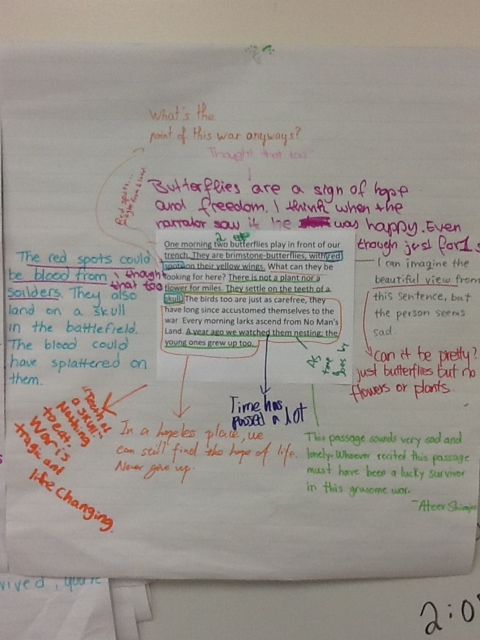 What's the
point of this war anyways?
Thought that too
Butterflies are a sign of hope
and freedom. I think when the
narrator saw it he was happy. Even
though just for 1 s
One morning two butterflies play in front of our
trench. They are brimstone-butterflies, with red
spots on their yellow wings. What can they be
looking for here? There is not a plant nor a
flower for miles. They settle on the teeth of a
skull. The birds too are just as carefree, they
have long since accustomed themselves to the
war. Every morning larks ascend from No Man's
Land. A year ago we watched them nesting; the
young ones grew up too.
The red spots could
be blood from
soilders. They also
land on a skull
in the battlefield.
The blood could
have splattered on
them.
I thought
that too
I can imagine the
beautiful view from
this sentence, but
the person seems
sad.
Can it be pretty?
just butterflies but no
flowers or plants
As
time
goes by
Time has
passed a lot
"Teeth of
a skull"
Nothing
to eat.
War is
tragic and
life changing.
In a hopeless place, we
can still find the hope of life.
Never give up.
This passage sounds very sad and
lonely. Whoever recited this passage
must have been a lucky survivor
in this gruesome war.
2:0